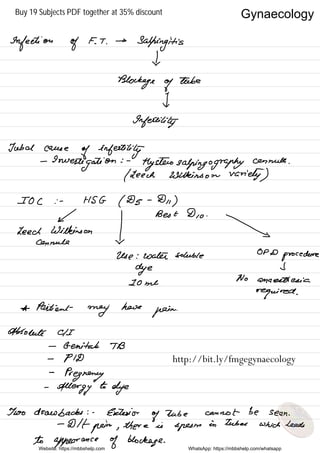 Buy 19 Subjects PDF together at 35% discount
Gynaecology
Infection of F.T. → Salpingitis
↓
Blockage of tube
↓
Infertility
Tubal cause of infertility
- Investigation :- Hysterosalpingography cannula.
(Leech Wilkinson variety)
IOC :- HSG (D5 - D11)
Best D10.
Leech Wilkinson
Cannula
Use : water soluble
dye
10 ml
OPD procedure
↓
No anaesthesia
required.
* Patient may have pain
Absolute C/I
- Genital TB
- PID
- Pregnancy
- Allergy to dye
http://bit.ly/fmgegynaecology
Two drawbacks :- Exterior of tube cannot be seen.
- D/t pain, there is spasm in tubes which leads
to appearance of blockage.
Website: https://mbbshelp.com
WhatsApp: https://mbbshelp.com/whatsapp